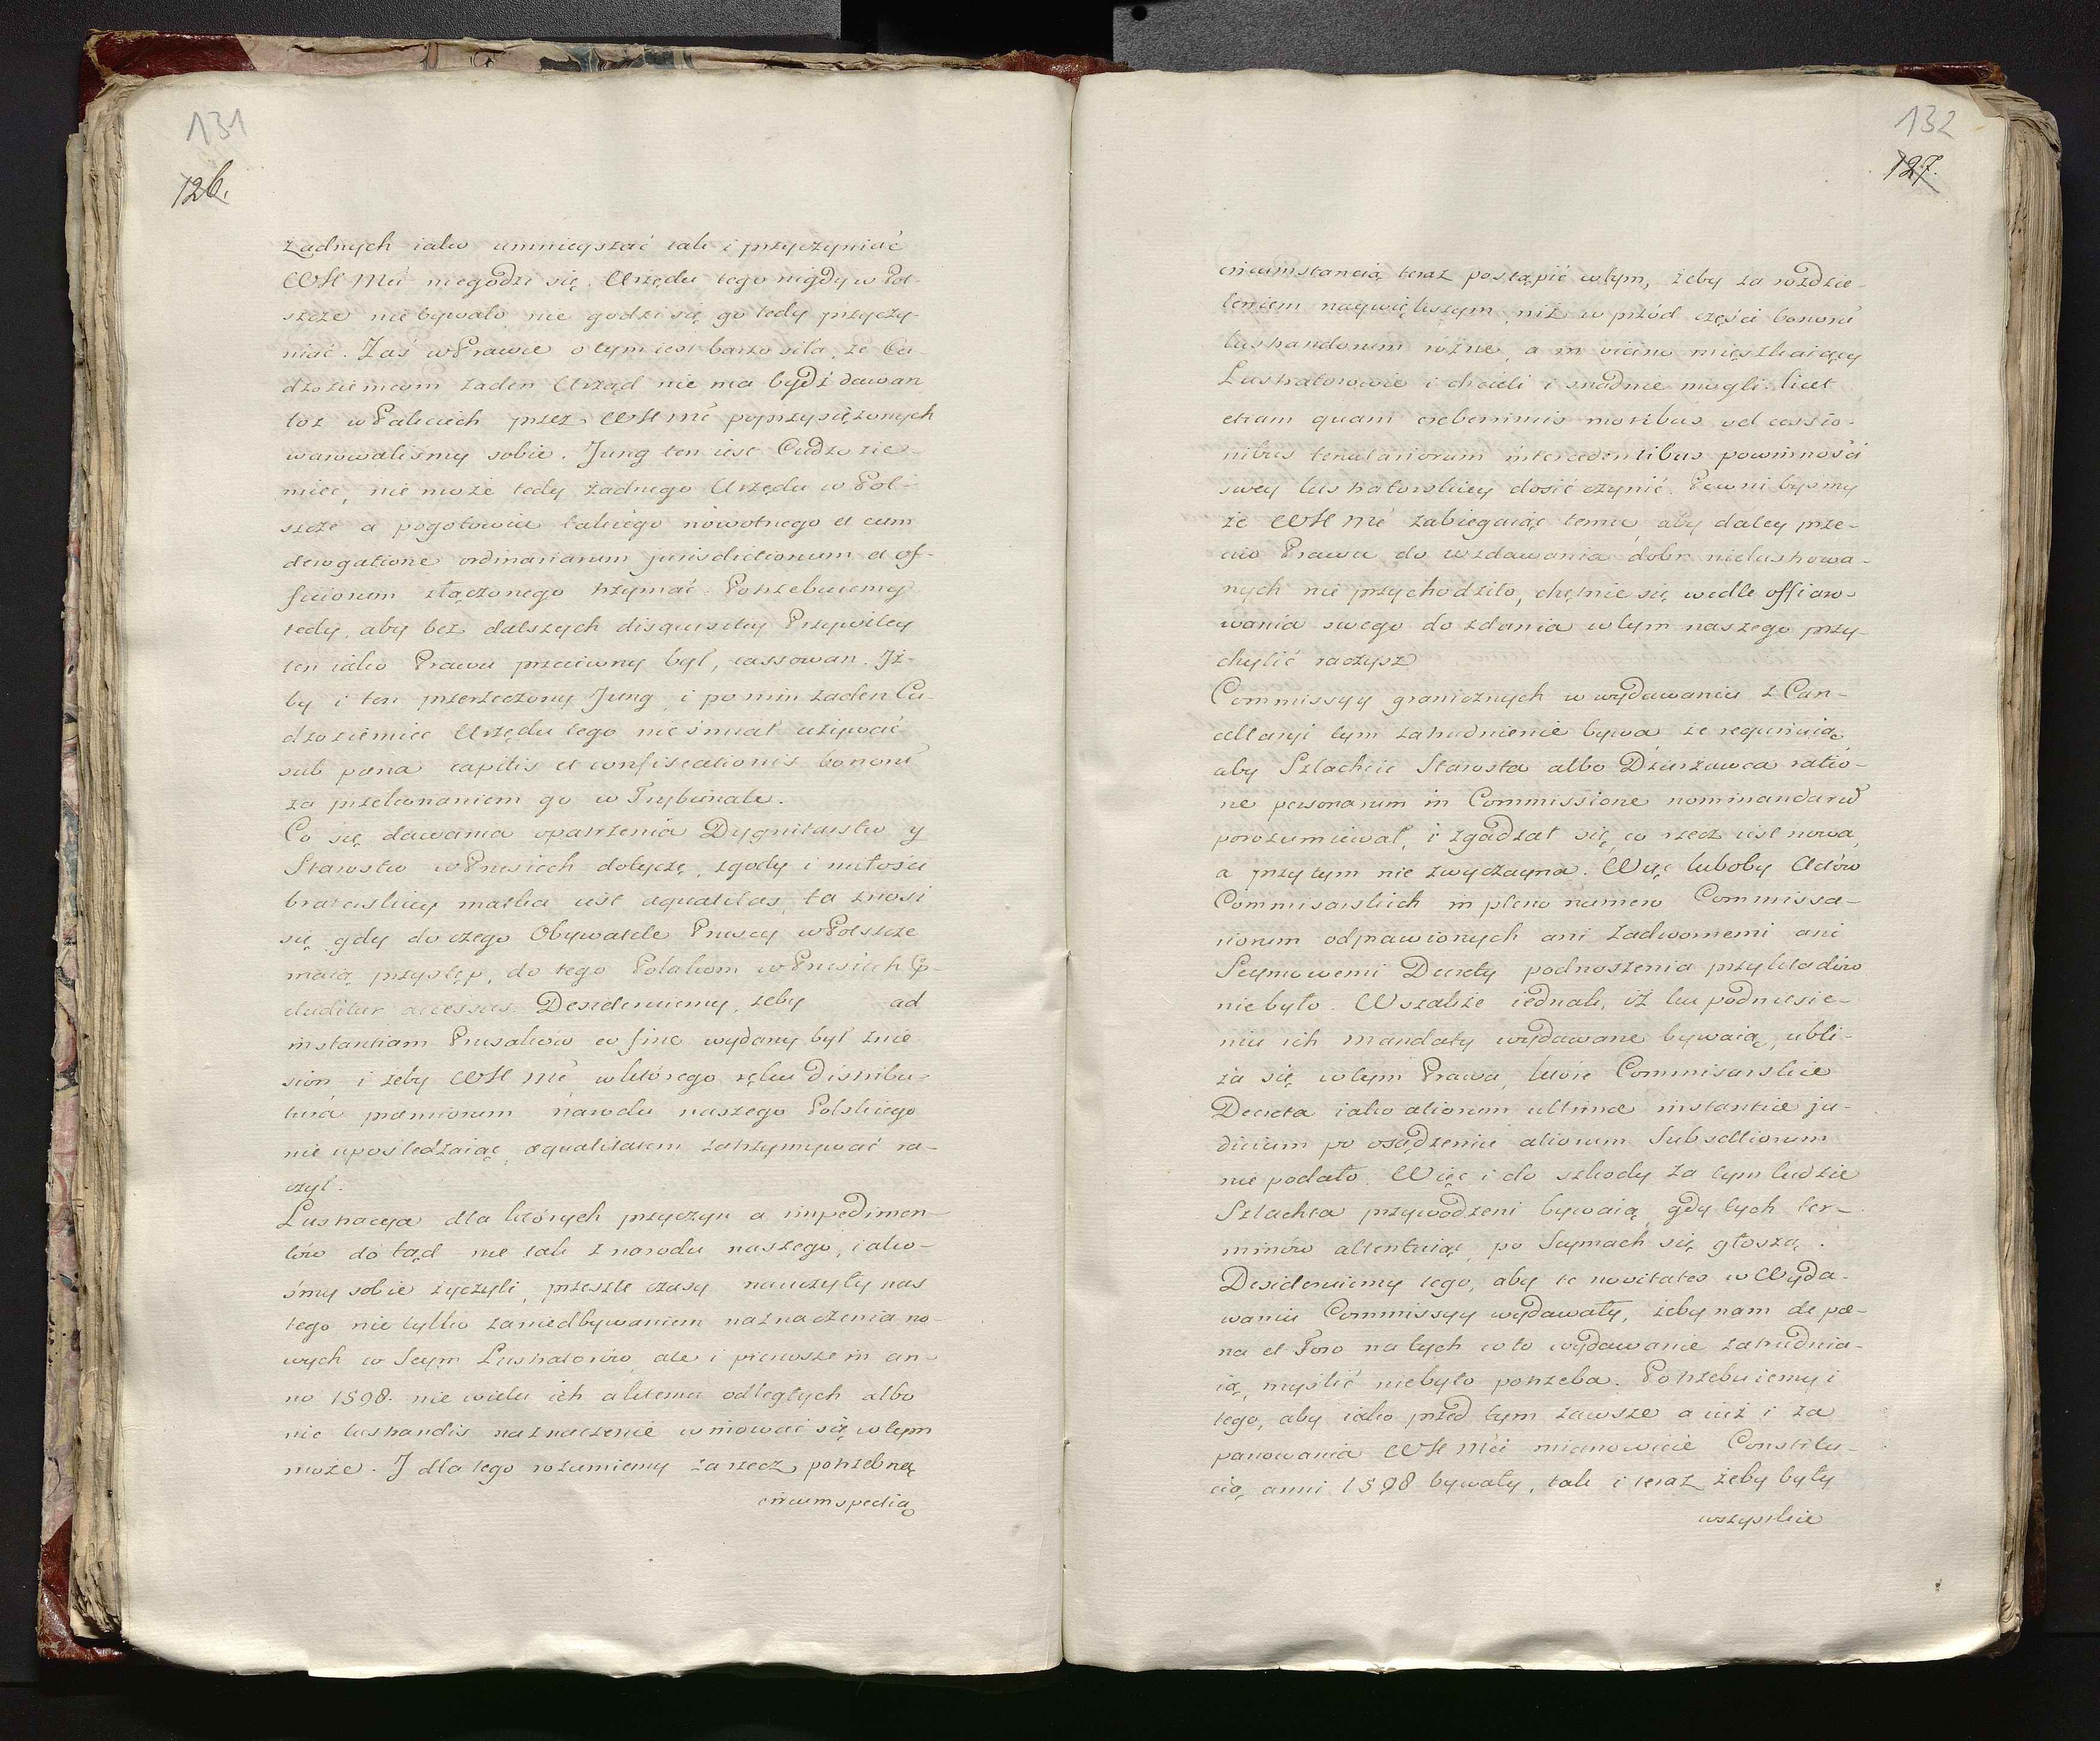 131
126.
żadnych iako umnieyszać tak i przyczyniać
WKMći niegodzi się. Urzędu tego nigdy w Pol-
szcze nie bywało, nie godzi się go tedy przyczy-
niać. Zaś w Prawie o tym iest barzo siła, że Cu-
dzoziemcom żaden Urząd nie ma bydź dawan
toż w Paktach przez WKMć poprzysiężonych
warowaliśmy sobie. Jung ten iest Cudzozie-
miec, nie może tedy żadnego Urzędu w Pol-
szcze a pogotowiu takiego nowotnego et cum
derogatione ordinariarum jurisdictionum et of-
ficiorum złączonego trzymać. Potrzebuiemy
tedy, aby bez dalszych disquisitiy Przywiley
ten iako Prawu przeciwny był, cassowan. Iż-
by i ten przerzeczony Jung, i po nim żaden Cu-
dzoziemiec Urzędu tego nie śmiał używać
sub pœna capitis et confiscationis bonorū
za przekonaniem go w Trybunale.
Co się dawania opatrzenia Dygnitarstw y
Starostw w Prusiech dotyczę, zgody i miłości
braterskiey matka iest æqualitas, ta znosi
się gdy do czego Obywatele Pruscy w Polszcze
maią przystęp, do tego Polakom w Prusiech
cluditur accessus. Desideruiemy, żeby ad
instantiam Prusaków eo fine wydany był znie
sion i żeby WKMć w którego ręku Distribu-
tiva præmiorum narodu naszego Polskiego
nie upośledzaiąc æqualitatem zatrzymywać ra-
czył.
Lustracya dla których przyczyn a impedimen-
tów do tąd nie tak z narodu naszego, iako-
śmy sobie życzyli, przeszłe czasy nauczyły nas
tego nie tylko zaniedbywaniem naznaczenia no-
wych w Seym Lustratorów, ale i pierwsze in an-
no 1598. nie wielu ich a ktemu odległych albo
nie lustrandis naznaczenie wmować się w tym
może. I dla tego rozumiemy za rzecz potrzebną
circumspectią
132
127.
circumstancią teraz postąpić w tym, żeby za rozdzie-
leniem naywiętszym, niż w przód części bonorū
lustrandorum różne, a in vicino mięszkaiący
Lustratorowie i chcieli i snadnie mogli licet
etiam quam creberrimis mortibus vel cessio-
nibus tenutariorum intercedentibus powinności
swey lustratorskiey dosić czynić. Pewni byśmy
że WKMć zabiegaiąc temu, aby daley prze-
ciw Prawu do wzdawania dobr nielustrowa-
nych nie przychodziło, chętnie się wedle offiaro-
wania swego do zdania w tym naszego przy-
chylić raczysz
Commissyy granicznych w wydawaniu z Can-
cellaryi tym zatrudnienie bywa że requiruią
aby Szlachcic Starosta albo Dzierżawca ratio-
ne personarum in Commissione nominandarū
porozumiewał, i zgadzał się, co rzecz iest nowa
a przy tym nie zwyczayna. Więc luboby Aktów
Commisarskich in pleno numero Commissa-
riorum odprawionych ani Zadwornemi ani
Seymowemi Decrety podnoszenia przykładów
niebyło. Wszakże iednak, iż ku podniesie-
niu ich mandaty wydawane bywaią, ubli-
ża się w tym Prawu, które Commisarskie
Decreta iako aliorum ultimæ instantiæ ju-
dicium po osądzeniu aliorum Subselliorum
nie podało. Więc i do szkody za tym ludzie
Szlachta przywodzeni bywaią, gdy tych ter-
minów attentuiąc, po Seymach się głoszą.
Desideruiemy tego, aby te novitates w Wyda-
waniu Commissyy wydawały, żeby nam de pœ-
na et Foro na tych co to wydawanie zatrudnia-
ią, myślić niebyło potrzeba. Potrzebuiemy i
tego, aby iako przed tym zawsze a iuż i za
panowania WKMći mianowicie Constitu-
cią anni 1598 bywały, tak i teraz żeby były
wszystkie